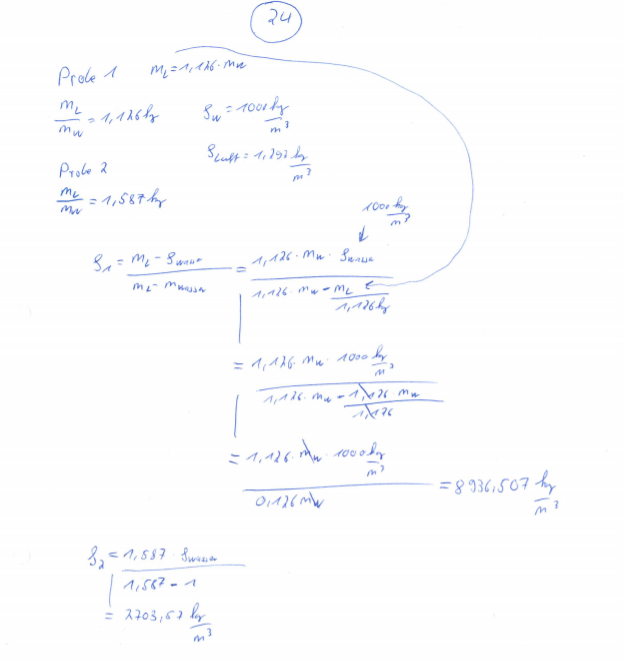 24
Probe 1 m_L = 1,126 · m_W
m_L / m_W = 1,126 kg ρ_W = 1000 kg/m³
ρ_Luft = 1,292 kg/m³
Probe 2
m_L / m_W = 1,587 kg
1000 kg/m³
ρ_1 = m_L - ρ_Wasser / m_L - m_Wasser = 1,126 · m_W · ρ_Wasser / 1,126 · m_W - m_L / 1,126 kg
= 1,126 · m_W · 1000 kg/m³ / 1,126 · m_W - 1,126 · m_W / 1,126
= 1,126 · m_W · 1000 kg/m³ / 0,126 m_W = 8936,507 kg/m³
ρ_2 = 1,587 · ρ_Wasser / 1,587 - 1
= 2703,57 kg/m³